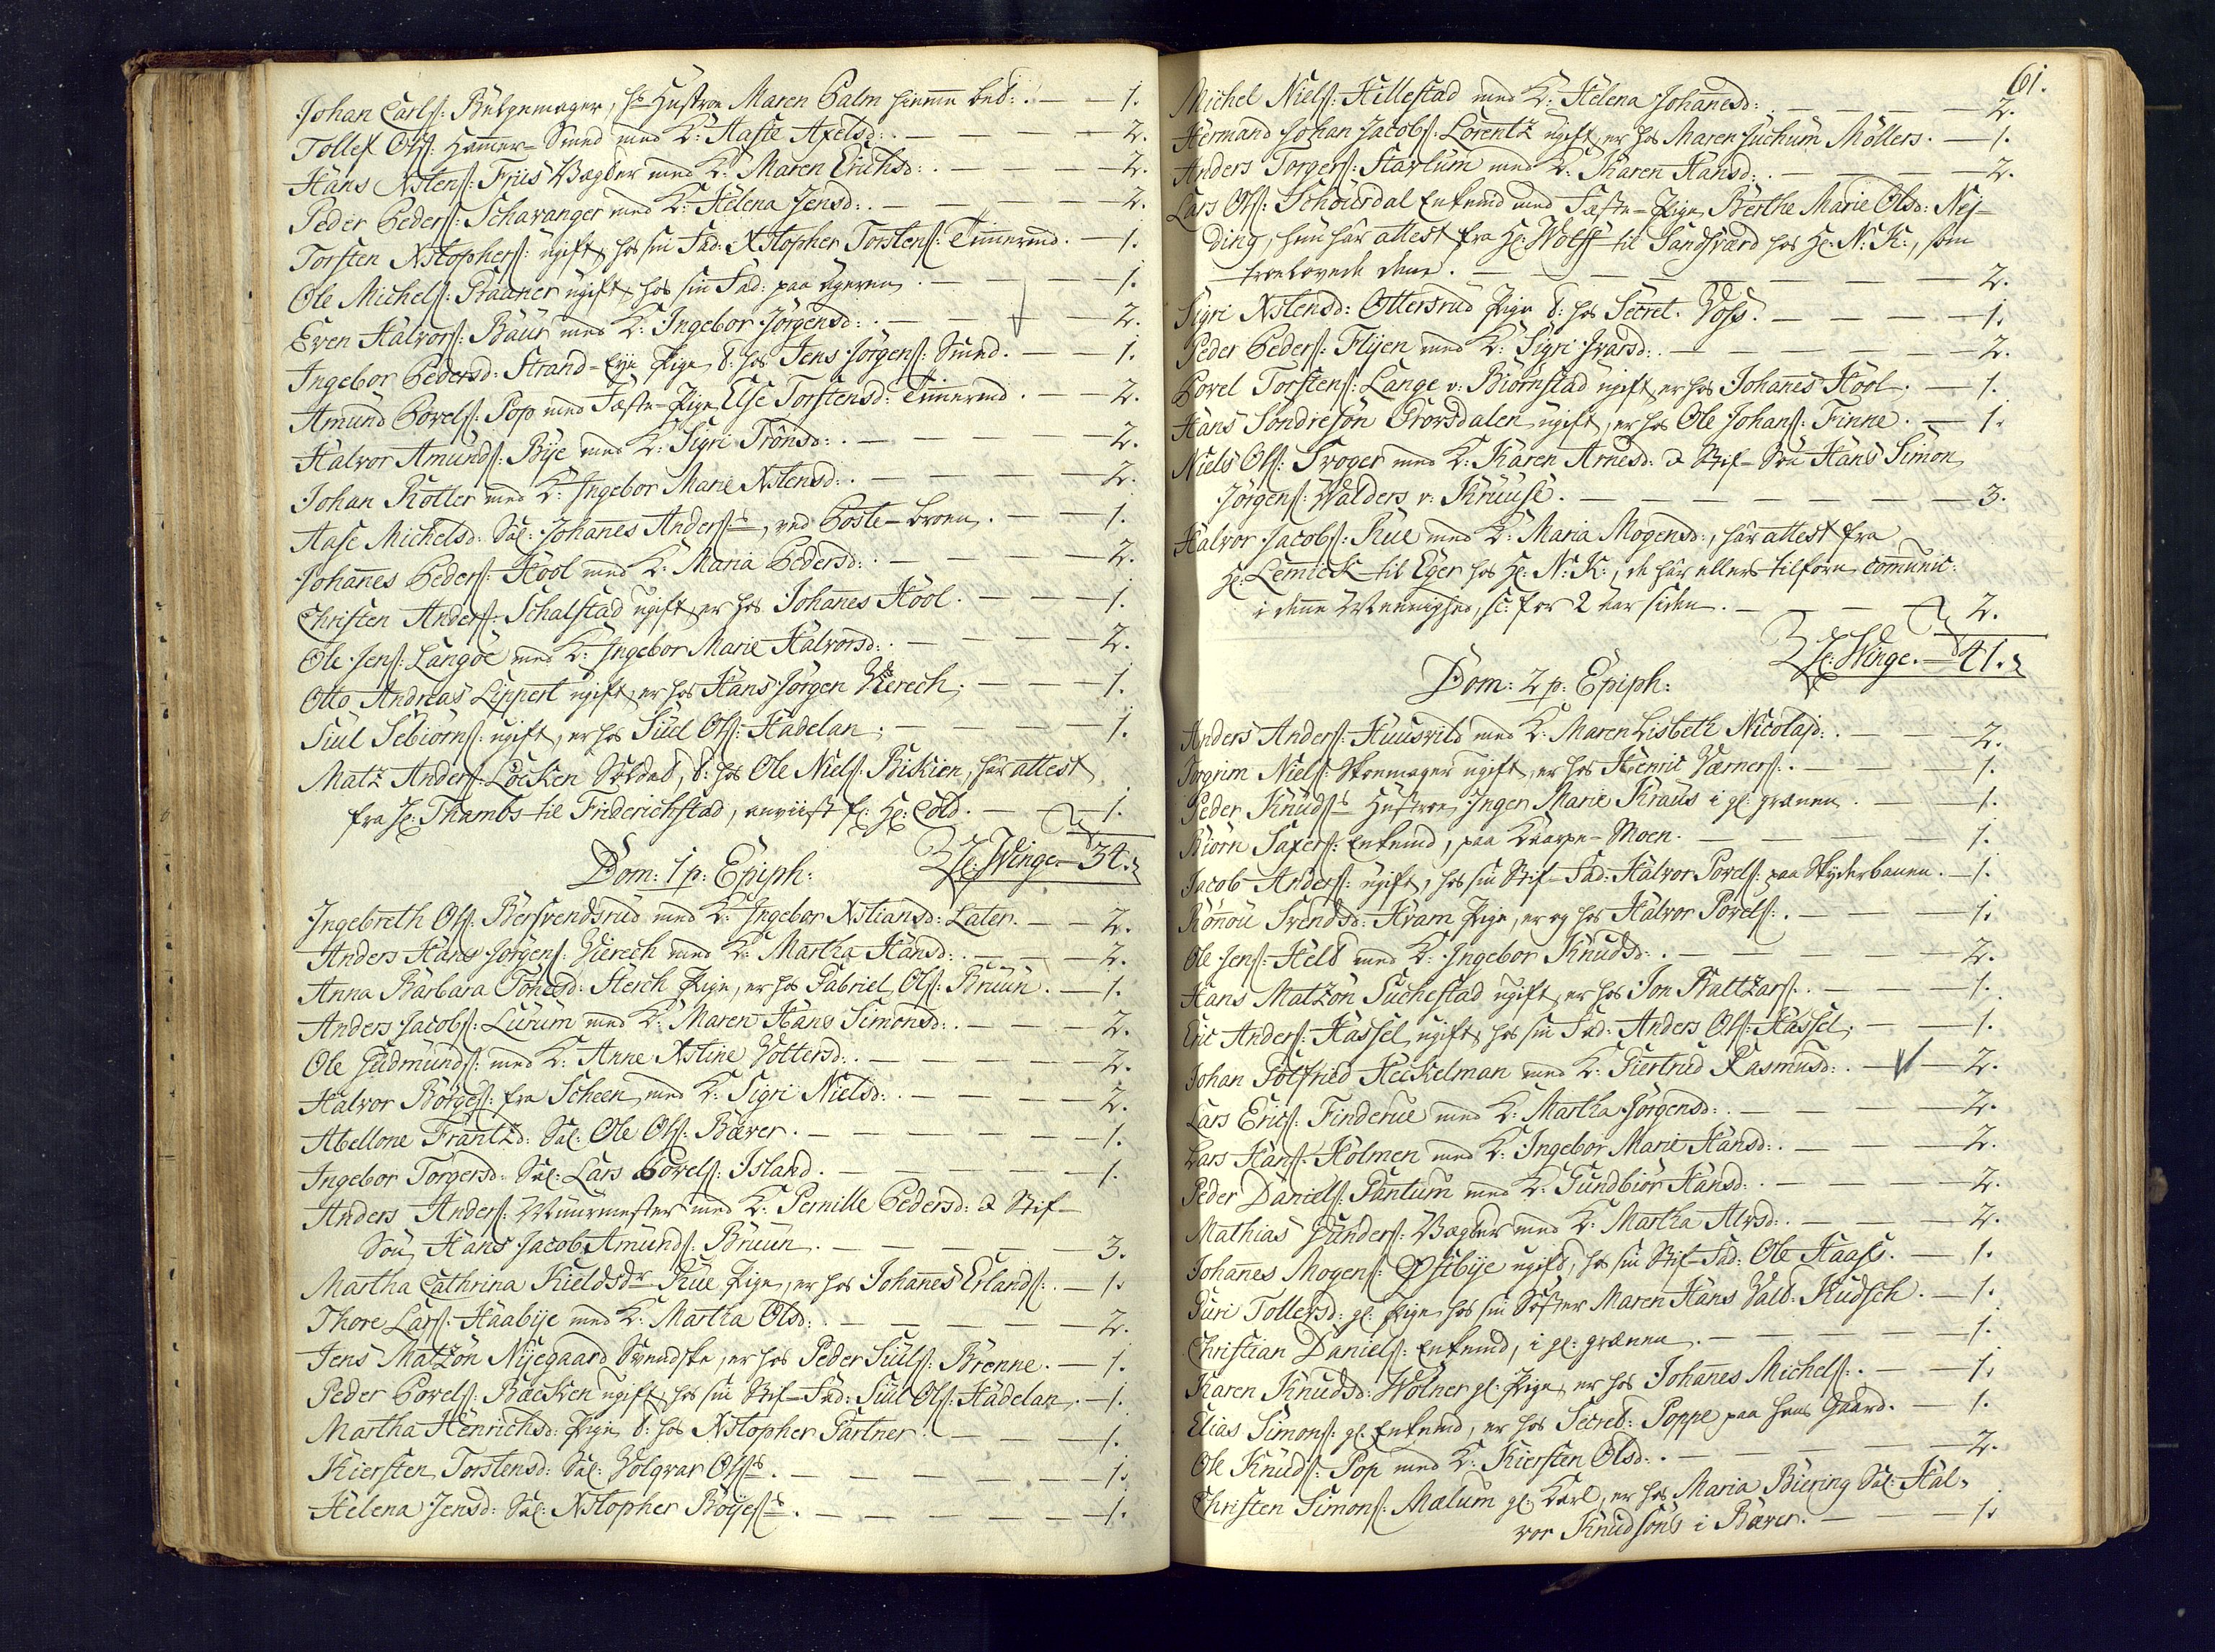 Johan Carls: Bælgemager, hs Hustroe Maren Palm hiemme bed: . — — 1.
Tollef Ols: Hammer-Smed med K: Aaste Axelsd: . — — — — 2.
Hans Xstens: Friis Vægter med K: Maren Erichsd: . — — — — 2.
Peder Peders: Schavanger med K: Helena Jensd: . — — — — 2.
Torsten Xstophers: ugift, hos sin Fad: Xstopher Torstens: Timmermd. — 1.
Ole Michels: Graaner ugift, hos sin Fad: paa Ageren . — — 1.
Even Halvors: Baür med K: Ingebor Jörgensd: . — — — 2.
Ingebor Pedersd: Strand-Eye Pige, t: hos Jens Jörgens: Smed. — — 1.
Amund Povels: Pop med Fæste-Pige, Else Torstensd: Timmermd . — — 2.
Halvor Amunds: Bye med K: Sigri Trönsd: . — — — — 2.
Johan Rotter med K: Ingebor Marie Xstensd: . — — — 2.
Aase Michelsd: Sal: Johanes Anderss, ved Poste-broen. — — 1.
Johanes Peders: Hool med K: Maria Pedersd: . — — — 2.
Christen Anders: Schalstad ugift, er hos Johanes Hool. — — — 1.
Ole Jens: Langöe med K: Ingebor Marie Halvorsd: . — — — 2.
Otto Andreas Lippert ugift, er hos Hans Jörgen Vierech, — — — 1.
Siul Sebiörns: ugift, er hos Siul Ols: Hadelan, — — — 1.
Matz Anders: Löcken Soldat, t: hos Ole Niels: Bikien, har attest
fra Hr: Thambs til Friderichstad, anviist fr: Hr: Cold. — — 1.
Hr: Winge — 34.
Dom: 1 p: Epiph:
Ingebreth Ols: Bersvendsrud med K: Ingebor Xstiansd: Later. — — 2.
Anders Hans Jörgens: Vierech med K: Martha Hansd: . — — — 2.
Anna Barbara Tönesd: Herch Pige, er hos Gabriel Ols: Bruun. — 1.
Anders Jacobs: Lurum med K: Maren Hans Simonsd: . — — — 2.
Ole Gudmunds: med K: Anne Xstine Vottersd: . — — — — 2.
Halvor Börges: fra Scheen, med K: Sigri Nielsd: . — — — — 2.
Abellone Frantzd: Sal: Ole Ols: Bæver. — — — — — 1.
Ingebor Torgersd: Sal: Lars Povels: Island. — — — — — 1.
Anders Anders: Muurmester med K: Pernille Pedersd: & Stif-
Søn, Hans Jacob Amunds: Bruun. — — — — — 3.
Martha Cathrina Kieldsdr Rue Pige, er hos Johanes Erlands: . — 1.
Thore Lars: Haabye med K: Martha Olsd: . — — — — 2.
Jens Matzön Nyegaard Svendske, er hos Peder Siuls: Brenne. — 1.
Peder Povels: Bæcken ugift, hos sin Stif-Fad: Siul Ols: Hadelan. — 1.
Martha Henrichsd: Pige, t: hos Xstopher Gartner. — — — — 1.
Kiersten Torstensd: Sal: Volgvar Olss. — — — — — 1.
Helena Jensd: Sal: Xstopher Böyess. — — — — — 1.
61.
Michel Niels: Hillestad med K: Helena Johanesd: . — — — — 2.
Hermand Johan Jacobs: Lorentz ugift, er hos Maren Jüchum Möllers. — 1.
Anders Torgers: Stavlum med K: Karen Hansd: . — — — — 2.
Lars Ols: Schouerdal Enkemd med Fæste-Pige, Berthe Marie Olsd: Ney-
ding, hun har attest fra Hr: Wolff til Sandsværd hos Hr: N: K:, som
troelovede dem. — — — — — — — 2.
Sigri Xstensd: Ottersrud Pige t: hos Secret. Voss. — — — — 1.
Peder Peders: Flyen med K: Sigri Ivarsd: . — — — — 2.
Povel Torstens: Lange v: Biörnstad ugift, er hos Johanes Hool, — 1.
Hans Sondresön Grovsdalen, ugift, er hos Ole Johans: Finne. — 1.
Niels Ols: Troger med K: Karen Arnesd: & Stif-Søn Hans Simon
Jörgens: Walders v: Kruuse. — — — — — — — 3.
Halvor Jacobs: Rue med K: Maria Mogensd:, har attest fra
Hr: Lemick til Eger hos Hr: N: K:, de har ellers tilforn comunic:
i denne Meenighed, sc: for 2 aar siden. — — — 2.
Hr: Winge. — 41.
Dom: 2 p: Epiph:
Anders Anders: Huusvild med K: Maren Lisbeth Nicolajd: . — — — 2.
Torgrim Niels: Skoemager ugift, er hos Henric Værners: . — — — 1.
Peder Knudss Hustroe, Inger Marie Kraus i gl: grænen . — — — 1.
Biörn Saxers: Enkemd, paa Kaarpe-Moen. — — — — 1.
Jacob Anders: ugift, hos sin Stif-Fad: Halvor Povels: paa Skyderbanen. — 1.
Rönou Svendsd: Hvam Pige, er og hos Halvor Povels: . — — — 1.
Ole Jens: Held med K: Ingebor Knudsd: . — — — — — 2.
Hans Matzön Suchestad ugift, er hos Jon Baltzars: . — — — 1.
Eric Anders: Hassel, ugift, hos sin Fad: Anders Ols: Hassel, — — 1.
Johan Gotfried Heckelman med K: Giertrud Rasmusd: . — — 2.
Lars Erics: Finderue med K: Martha Jörgensd: . — — — — 2.
Lars Hans: Holmen med K: Ingebor Marie Hansd: . — — — 2.
Peder Daniels: Gantum med K: Gundbiör Hansd: . — — — — 2.
Mathias Gunders: Vægter med K: Martha Alvsd: . — — — 2.
Johanes Mogens: Østbye ugift, hos sin Stif-Fad: Ole Haass. — 1.
Guri Tollefsd: gl: Pige, hos sin Søster Maren Hans Vald: Rudsch. — 1.
Christian Daniels: Enkemd, i gl: grænen . — — — — — 1.
Karen Knudsd: Wolner gl: Pige, er hos Johanes Michels: . — — 1.
Elias Simons: gl: Enkemd, er hos Secret: Poppe paa hans Gaard. — 1.
Ole Knuds: Pop med K: Kiersten Olsd: . — — — — 2.
Christen Simons: Mælum gl: Karl, er hos Maria Biering Sal: Hal-
vor Knudsöns i Bæver. — — — 1.